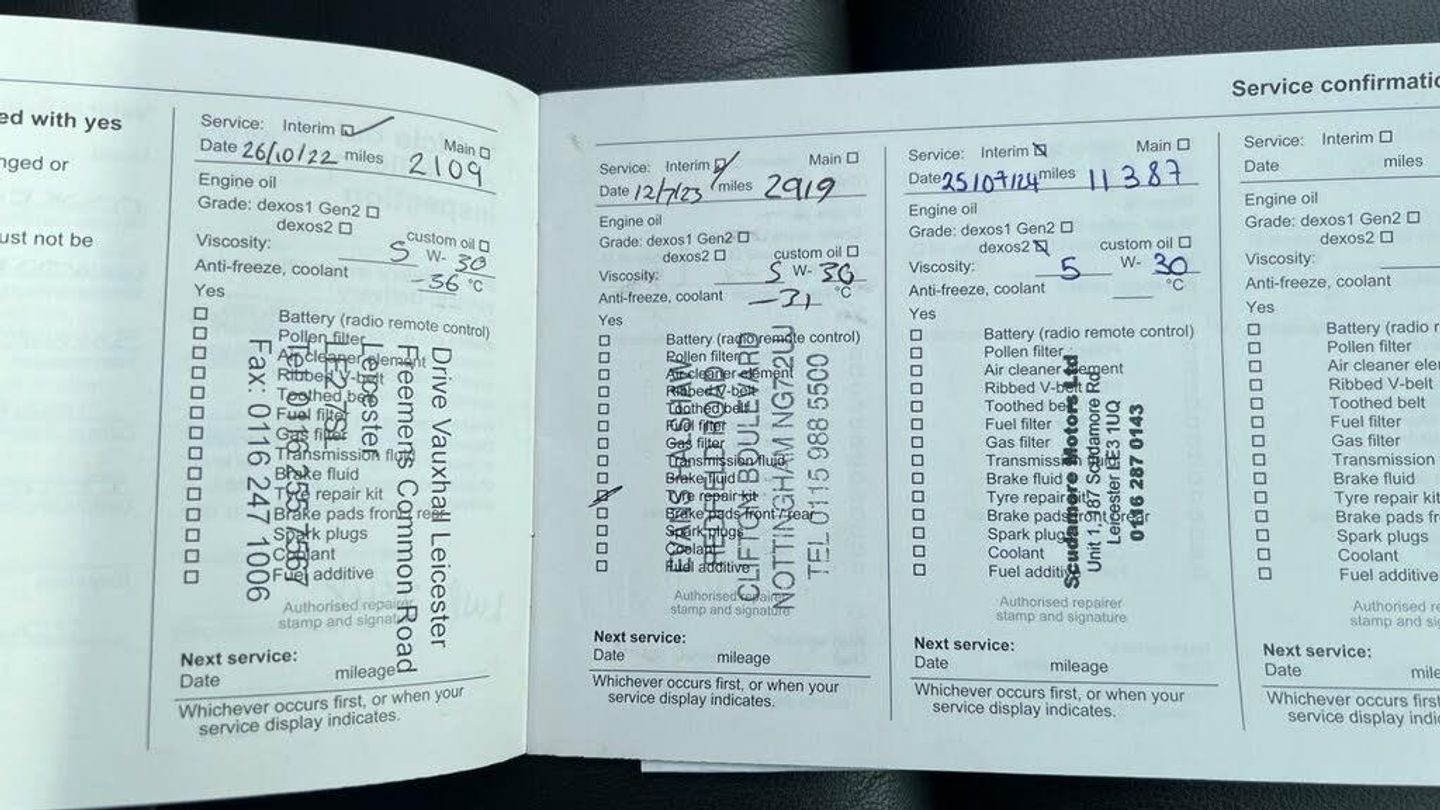 ed with yes
nged or
ust not be
Service: Interim
Main
Date 26/10/22 miles 2109
Engine oil
Grade: dexos1 Gen2
dexos2
custom oil
Viscosity: 5 W- 30
Anti-freeze, coolant -36 °C
Yes
Battery (radio remote control)
Pollen filter
Air cleaner element
Ribbed V-belt
Toothed belt
Fuel filter
Gas filter
Transmission fluid
Brake fluid
Tyre repair kit
Brake pads front / rear
Spark plugs
Coolant
Fuel additive
Drive Vauxhall Leicester
Freemens Common Road
Leicester
Fax: 0116 247 1006
Authorised repairer
stamp and signature
Next service:
Date mileage
Whichever occurs first, or when your
service display indicates.
Service confirmatio
Service: Interim Main
Date 12/7/23 miles 2919
Engine oil
Grade: dexos1 Gen2
dexos2 custom oil
Viscosity: 5 W- 30
Anti-freeze, coolant -31 °C
Yes
Battery (radio remote control)
Pollen filter
Air cleaner element
Ribbed V-belt
Toothed belt
Fuel filter
Gas filter
Transmission fluid
Brake fluid
Tyre repair kit
Brake pads front / rear
Spark plugs
Coolant
Fuel additive
EVANS HALSHAW
REDFIELD ROAD
CLIFTON BOULEVARD
NOTTINGHAM NG7 2UU
TEL 0115 988 5500
Authorised repairer
stamp and signature
Next service:
Date mileage
Whichever occurs first, or when your
service display indicates.
Service: Interim Main
Date 25/07/24 miles 11387
Engine oil
Grade: dexos1 Gen2
dexos2 custom oil
Viscosity: 5 W- 30
Anti-freeze, coolant °C
Yes
Battery (radio remote control)
Pollen filter
Air cleaner element
Ribbed V-belt
Toothed belt
Fuel filter
Gas filter
Transmission fluid
Brake fluid
Tyre repair kit
Brake pads front / rear
Spark plugs
Coolant
Fuel additive
Scudamore Motors Ltd
Unit 1, 187 Scudamore Rd
Leicester LE3 1UQ
0116 287 0143
Authorised repairer
stamp and signature
Next service:
Date mileage
Whichever occurs first, or when your
service display indicates.
Service: Interim
Date miles
Engine oil
Grade: dexos1 Gen2
dexos2
Viscosity:
Anti-freeze, coolant
Yes
Battery (radio r
Pollen filter
Air cleaner elem
Ribbed V-belt
Toothed belt
Fuel filter
Gas filter
Transmission
Brake fluid
Tyre repair kit
Brake pads fr
Spark plugs
Coolant
Fuel additive
Authorised re
stamp and sig
Next service:
Date mile
Whichever occurs first
service display indic